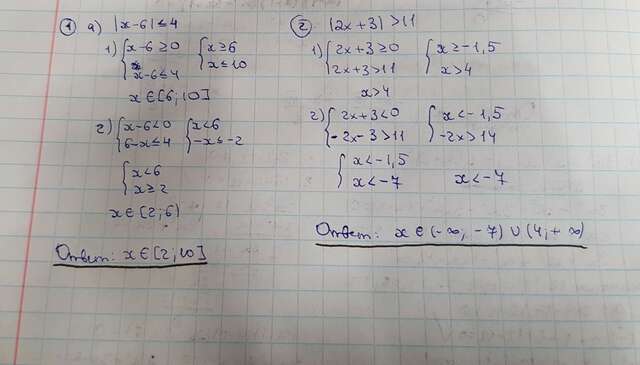 ① а) |x-6|≤4
1) { x-6≥0 { x≥6
x-6≤4 x≤10
x∈[6;10]
2) { x-6<0 { x<6
6-x≤4 -x≤-2
{ x<6
x≥2
x∈[2;6)
Ответ: x∈[2;10]
② |2x+3|>11
1) { 2x+3≥0 { x≥-1,5
2x+3>11 x>4
x>4
2) { 2x+3<0 { x<-1,5
-2x-3>11 -2x>14
{ x<-1,5
x<-7 x<-7
Ответ: x∈(-∞;-7)∪(4;+∞)